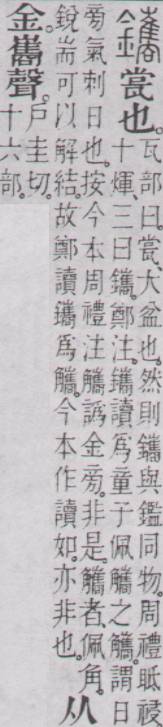 鑴瓽也。瓦部曰。瓽、大盆也。然則鑴與鑑同物。周禮眡祲
十煇。三曰鑴。鄭注。鑴讀爲童子佩觿之觿。謂日
旁氣刺日也。按今本周禮注觿譌金旁。非是。觿者、佩角。
銳耑可以解結。故鄭讀鑴爲觿。今本作讀如。亦非也。从
金巂聲。戶圭切。
十六部。